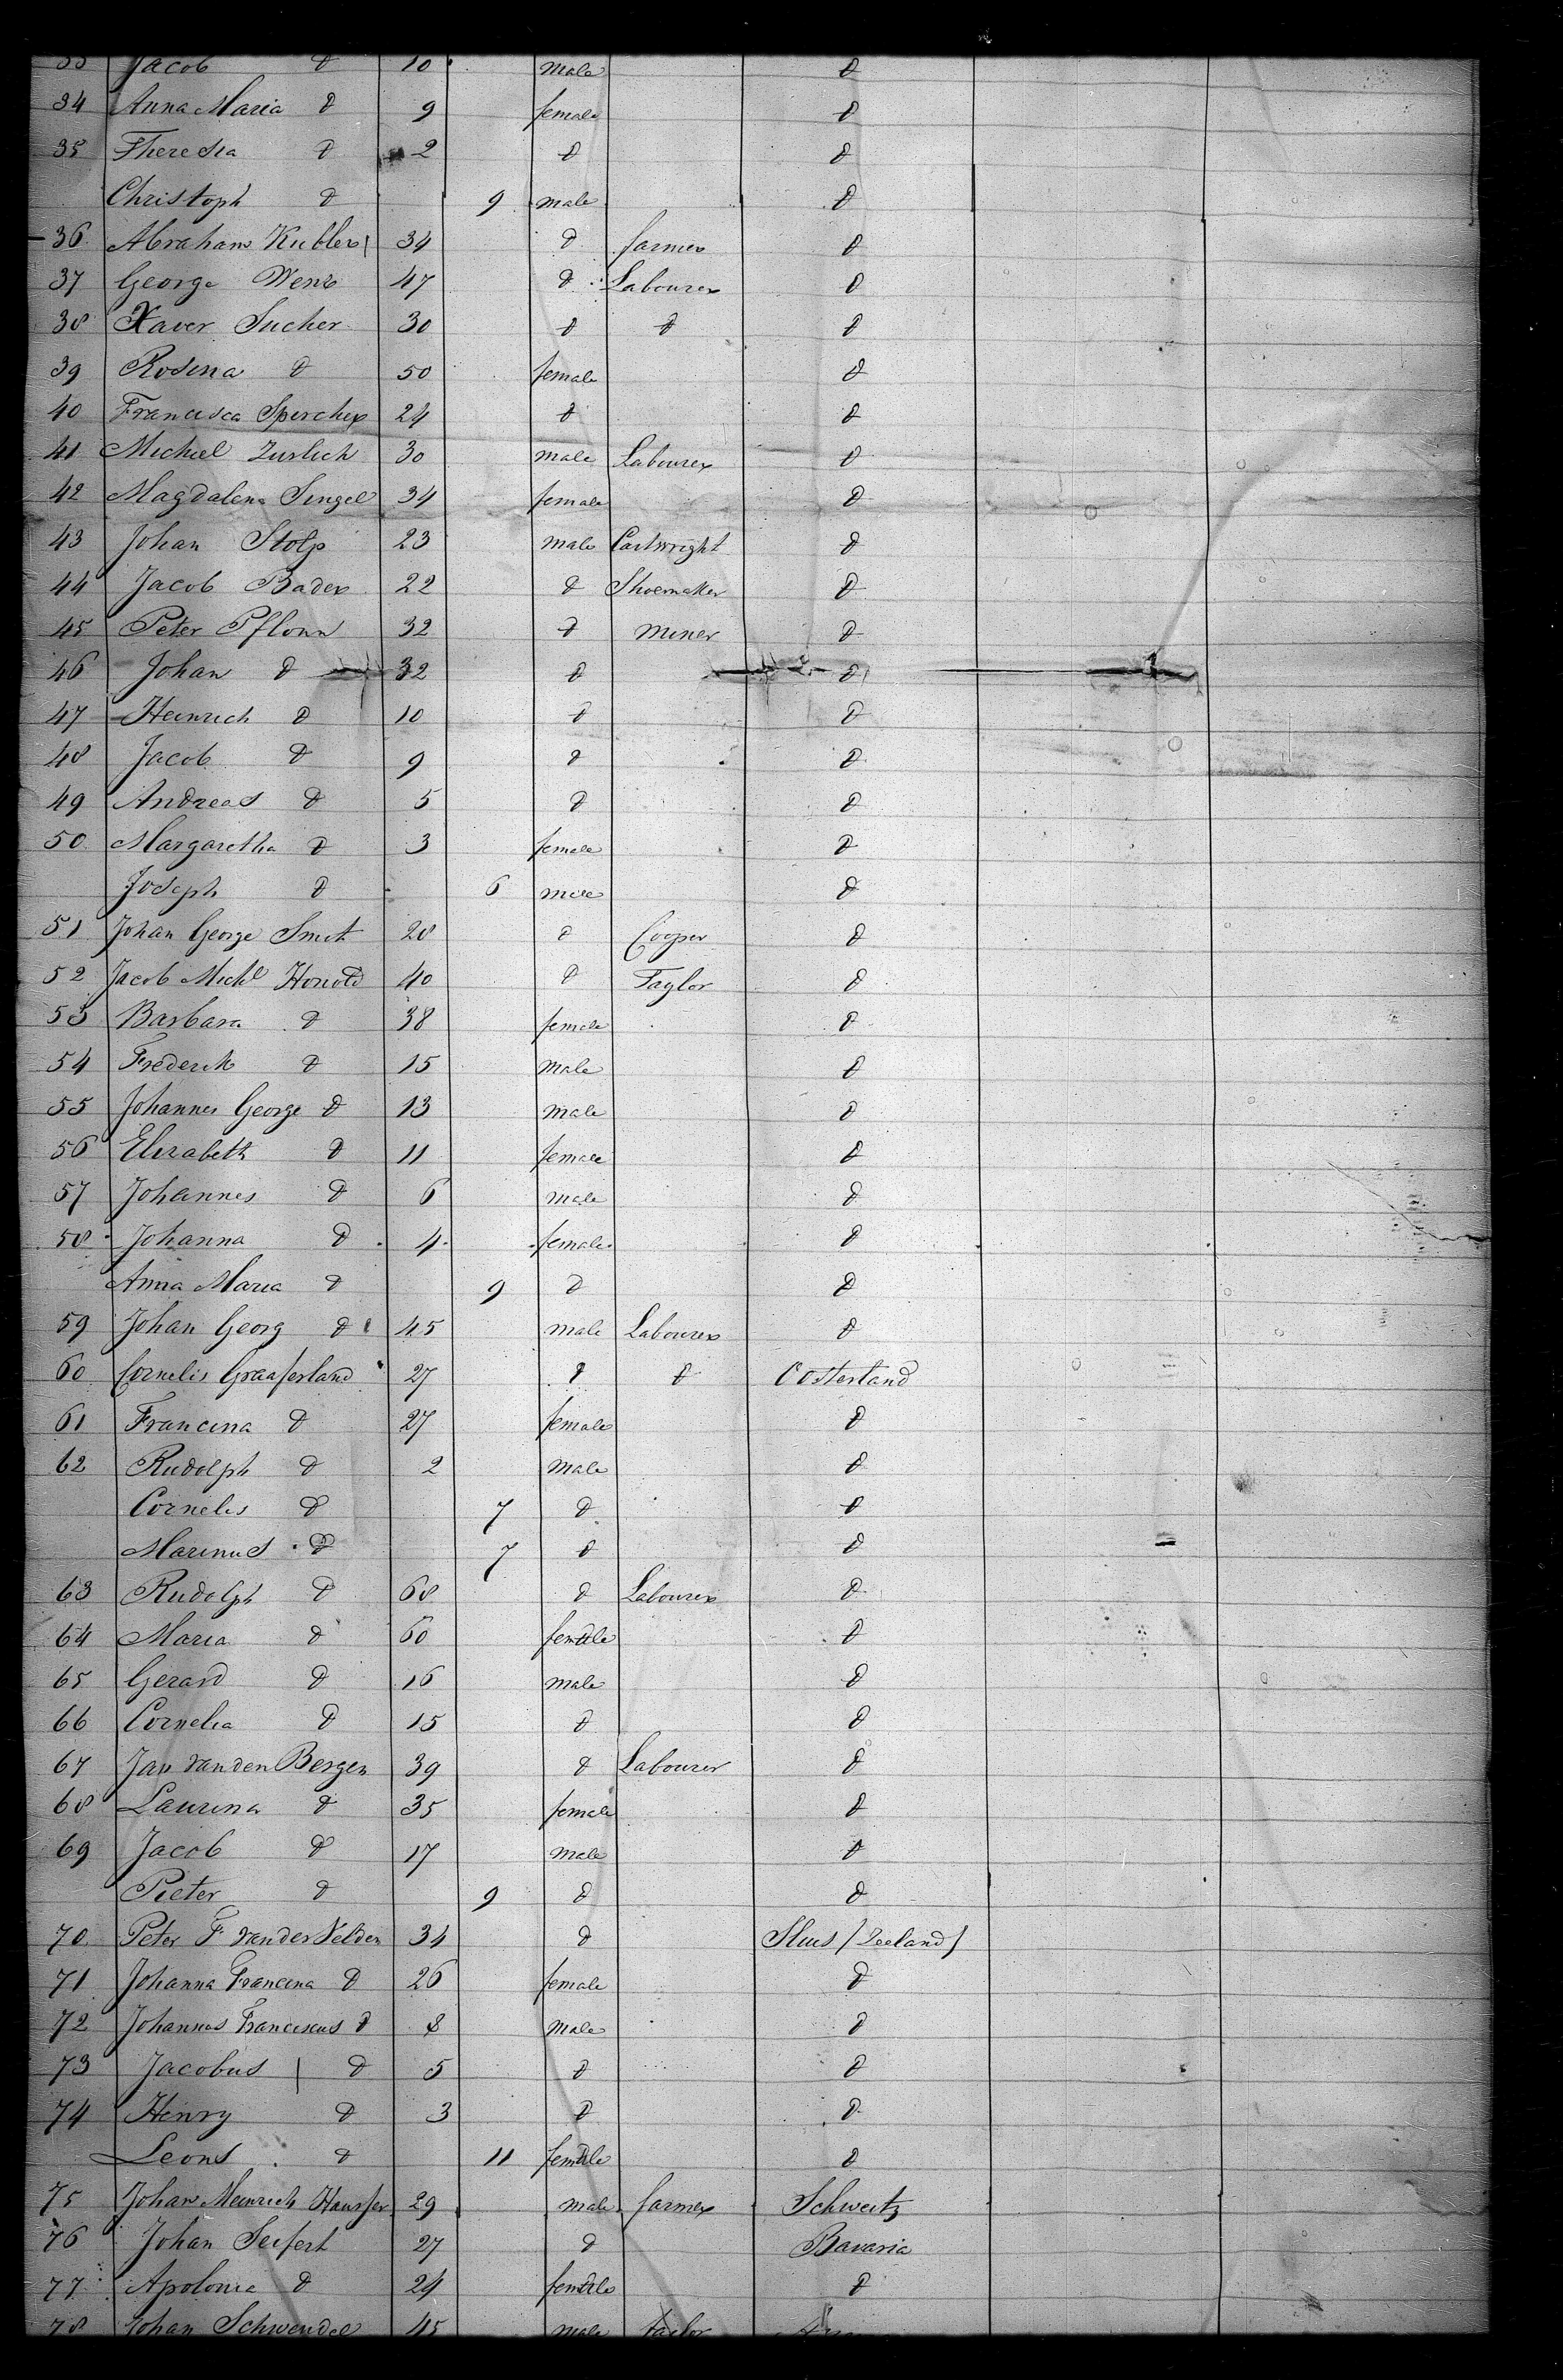 33 Jacob d 10 male d
34 Anna Maria d 9 female d
35 Theresia d 2 d d
Christoph d 9 male d
36 Abraham Kubler 34 d farmer d
37 George Wenz 47 d Labourer d
38 Xaver Sucher 30 d d d
39 Rosina d 50 female d
40 Francisca Spercher 24 d d
41 Michiel Zurlich 30 male Labourer d
42 Magdalena Singel 34 female d
43 Johan Stolp 23 male Cartwright d
44 Jacob Bader 22 d Shoemaker d
45 Peter Pflonn 32 d miner d
46 Johan d 32 d d
47 Heinrich d 10 d d
48 Jacob d 9 d d
49 Andreas d 5 d d
50 Margaretha d 3 female d
Joseph d 6 male d
51 Johan George Smit 28 d Cooper d
52 Jacob Michl Honold 40 d Taylor d
53 Barbara d 38 female d
54 Frederik d 15 male d
55 Johannes George d 13 male d
56 Elizabeth d 11 female d
57 Johannes d 6 male d
58 Johanna d 4 female d
Anna Maria d 9 d d
59 Johan Georg d 45 male Labourer d
60 Cornelis Graaferland 27 d d Oosterland
61 Francina d 27 female d
62 Rudolph d 2 male d
Cornelis d 7 d d
Marinus d 7 d d
63 Rudolph d 68 d Labourer d
64 Maria d 60 female d
65 Gerard d 16 male d
66 Cornelia d 15 d d
67 Jan van den Bergen 39 d Labourer d
68 Laurina d 35 female d
69 Jacob d 17 male d
Pieter d 9 d d
70 Peter F van der Velden 34 d Sluis (Zeeland)
71 Johanna Francina d 26 female d
72 Johannes Franciscus d 8 male d
73 Jacobus d 5 d d
74 Henry d 3 d d
Leons d 11 female d
75 Johan Heinrich 29 male farmer Schweitz
76 Johan Seifert 27 d Bavaria
77 Apolonia d 24 female d
78 Johan Schwendel 45 male taylor